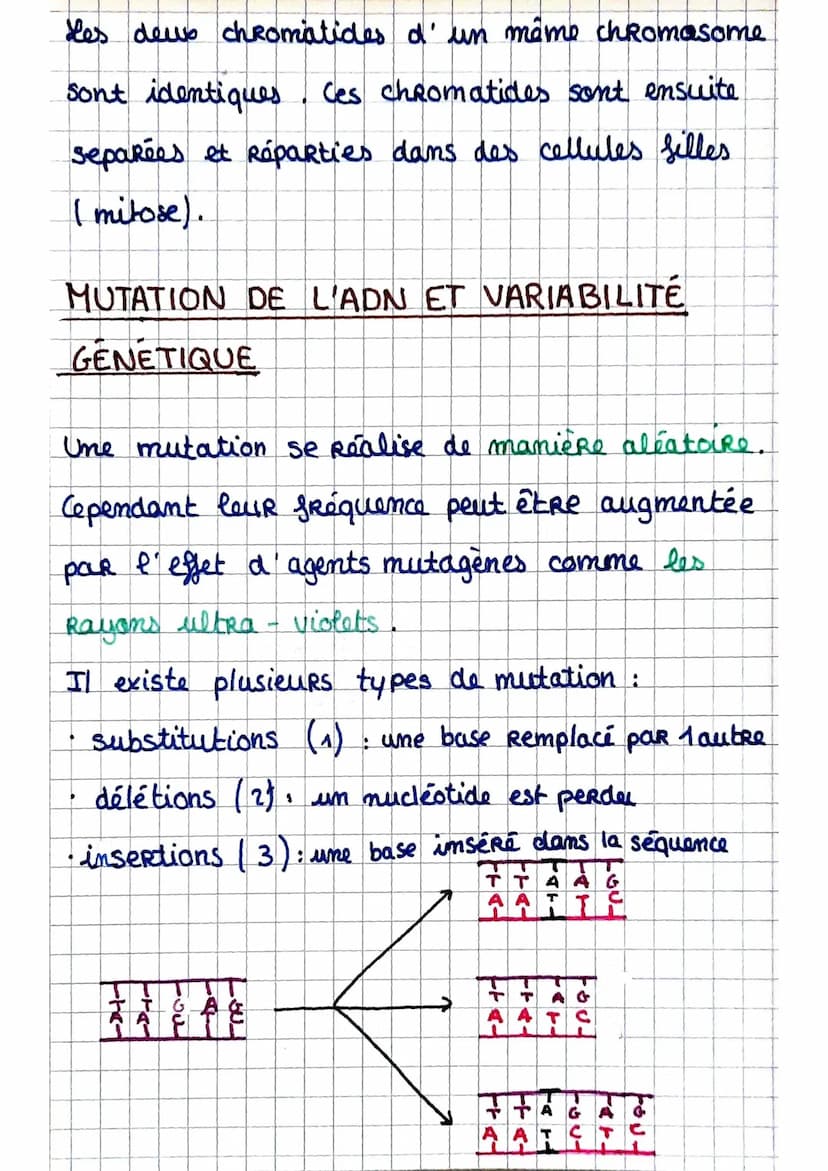 Les deux chromatides d'un même chromosome
sont identiques. Ces chromatides sont ensuite
separées et réparties dans des cellules filles
(mitose).
MUTATION DE L'ADN ET VARIABILITÉ
GÉNÉTIQUE
Une mutation se réalise de manière aléatoire.
Cependant leur fréquence peut être augmentée
par l'effet d'agents mutagènes comme les
rayons ultra-violets.
Il existe plusieurs types de mutation :
· substitutions (1) : une base remplacé par 1 autre
· délétions (2) : un nucléotide est perdu
· insertions (3) : une base inséré dans la séquence
T T A A G
A A T T C
T T G A G
A A C T C
T T A G
A A T C
T T A G A G
A A T C T C